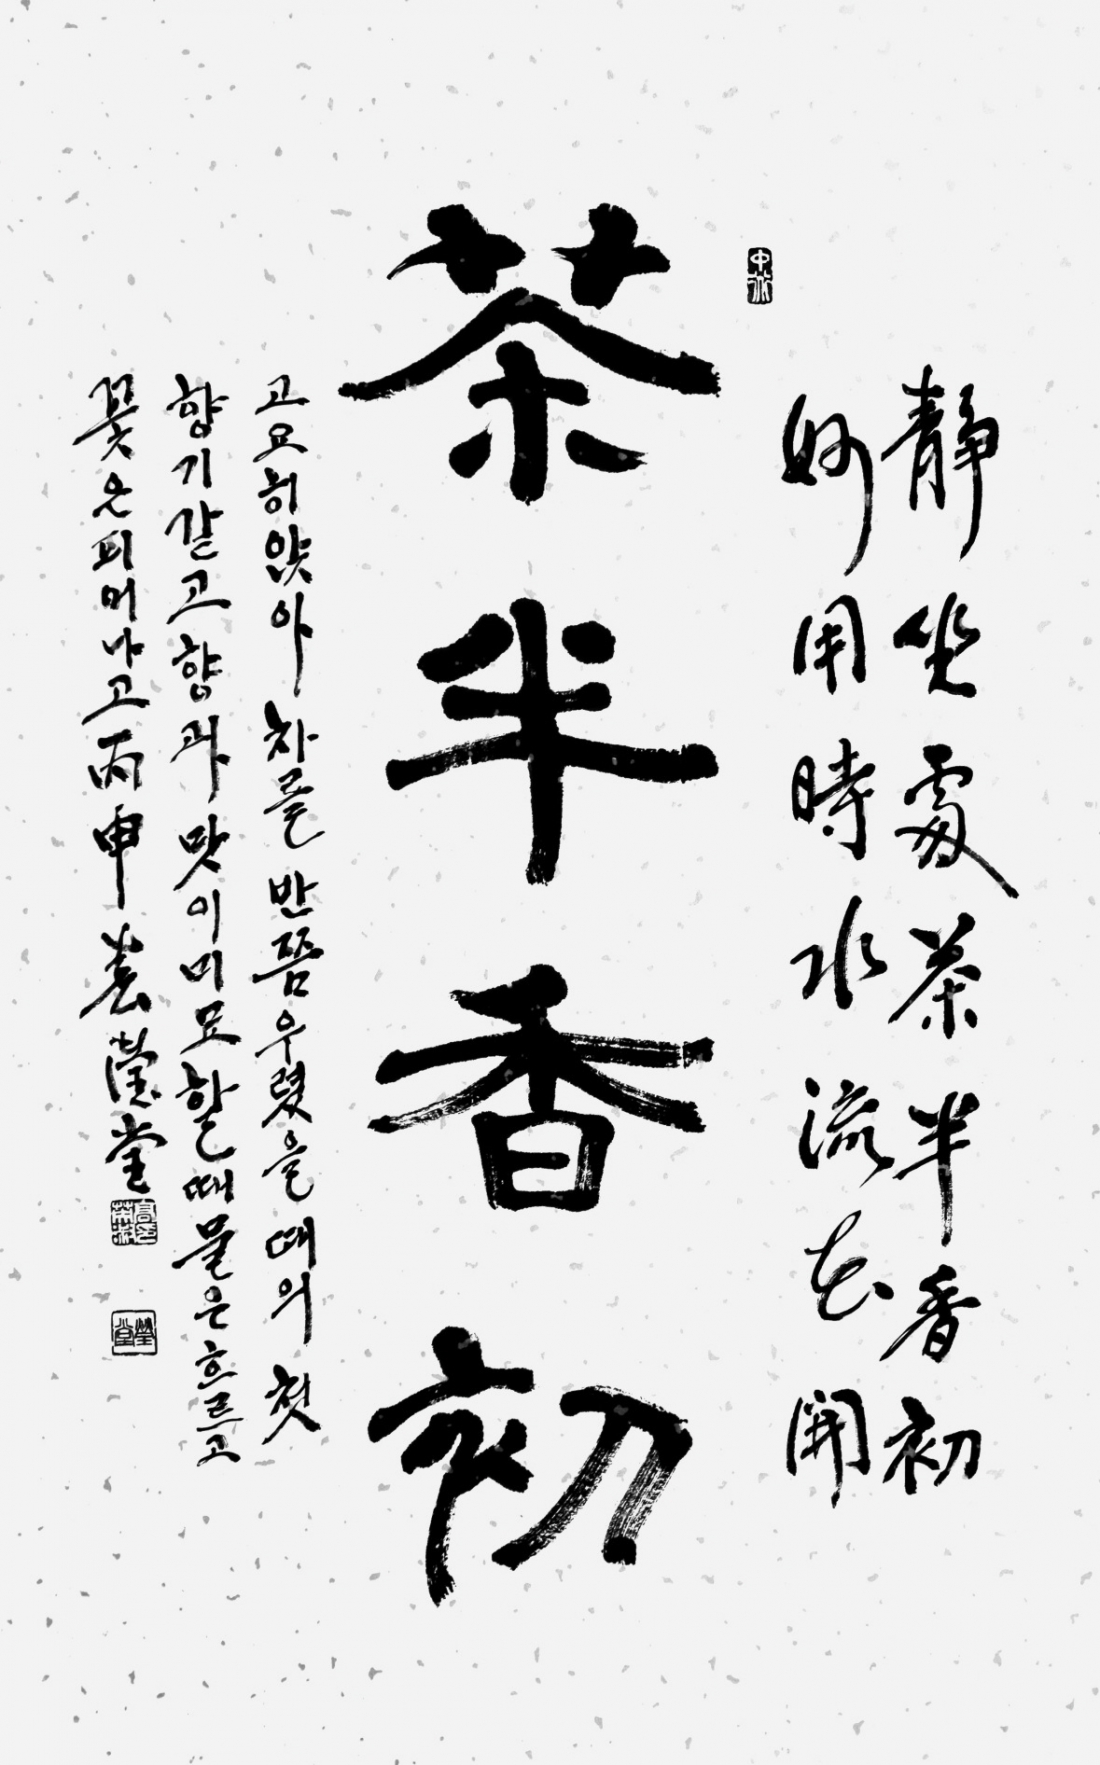 靜坐處茶半香初
妙用時水流花開
茶半香初
고요히앉아 차를 반쯤우렸을때의 첫
향기같고향과맛이미묘할때물은흐르고
꽃은피어나고丙申春瀅堂